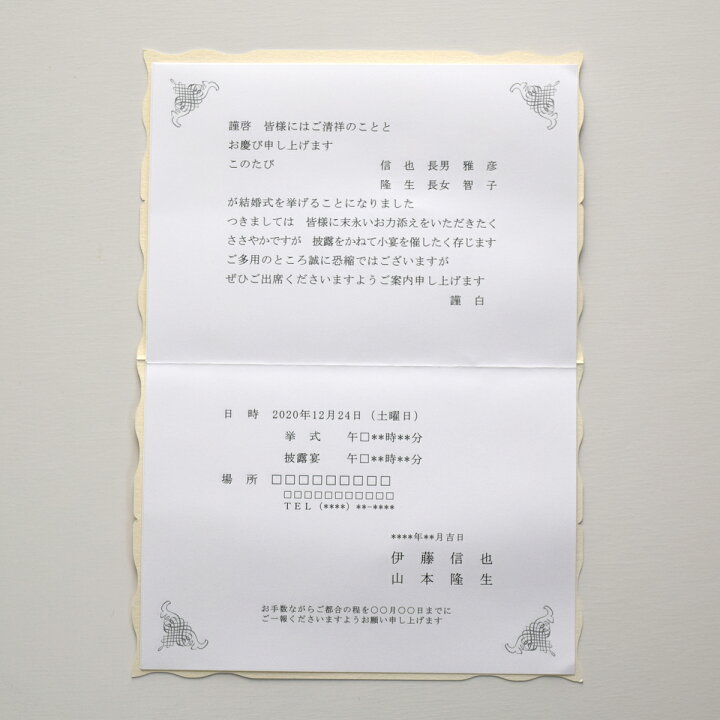 謹啓　皆様にはご清祥のことと
お慶び申し上げます
このたび　信　也　長男　雅　彦
隆　生　長女　智　子
が結婚式を挙げることになりました
つきましては　皆様に末永いお力添えをいただきたく
ささやかですが　披露をかねて小宴を催したく存じます
ご多用のところ誠に恐縮ではございますが
ぜひご出席くださいますようご案内申し上げます
謹　白
日　時　2020年12月24日（土曜日）
挙　式　午□**時**分
披露宴　午□**時**分
場　所　□□□□□□□□□
□□□□□□□□□□□
ＴＥＬ（****）**-****
****年**月吉日
伊　藤　信　也
山　本　隆　生
お手数ながらご都合の程を〇〇月〇〇日までに
ご一報くださいますようお願い申し上げます